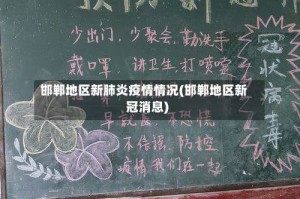 预防新
少出门，少聚会，勤洗手
戴口罩 讲卫生，打喷嚏
邯郸地区新肺炎疫情情况(邯郸地区新
冠消息)
早就医 不恐慌
不信谣，防控
疫情 我们在一起
冠状病毒